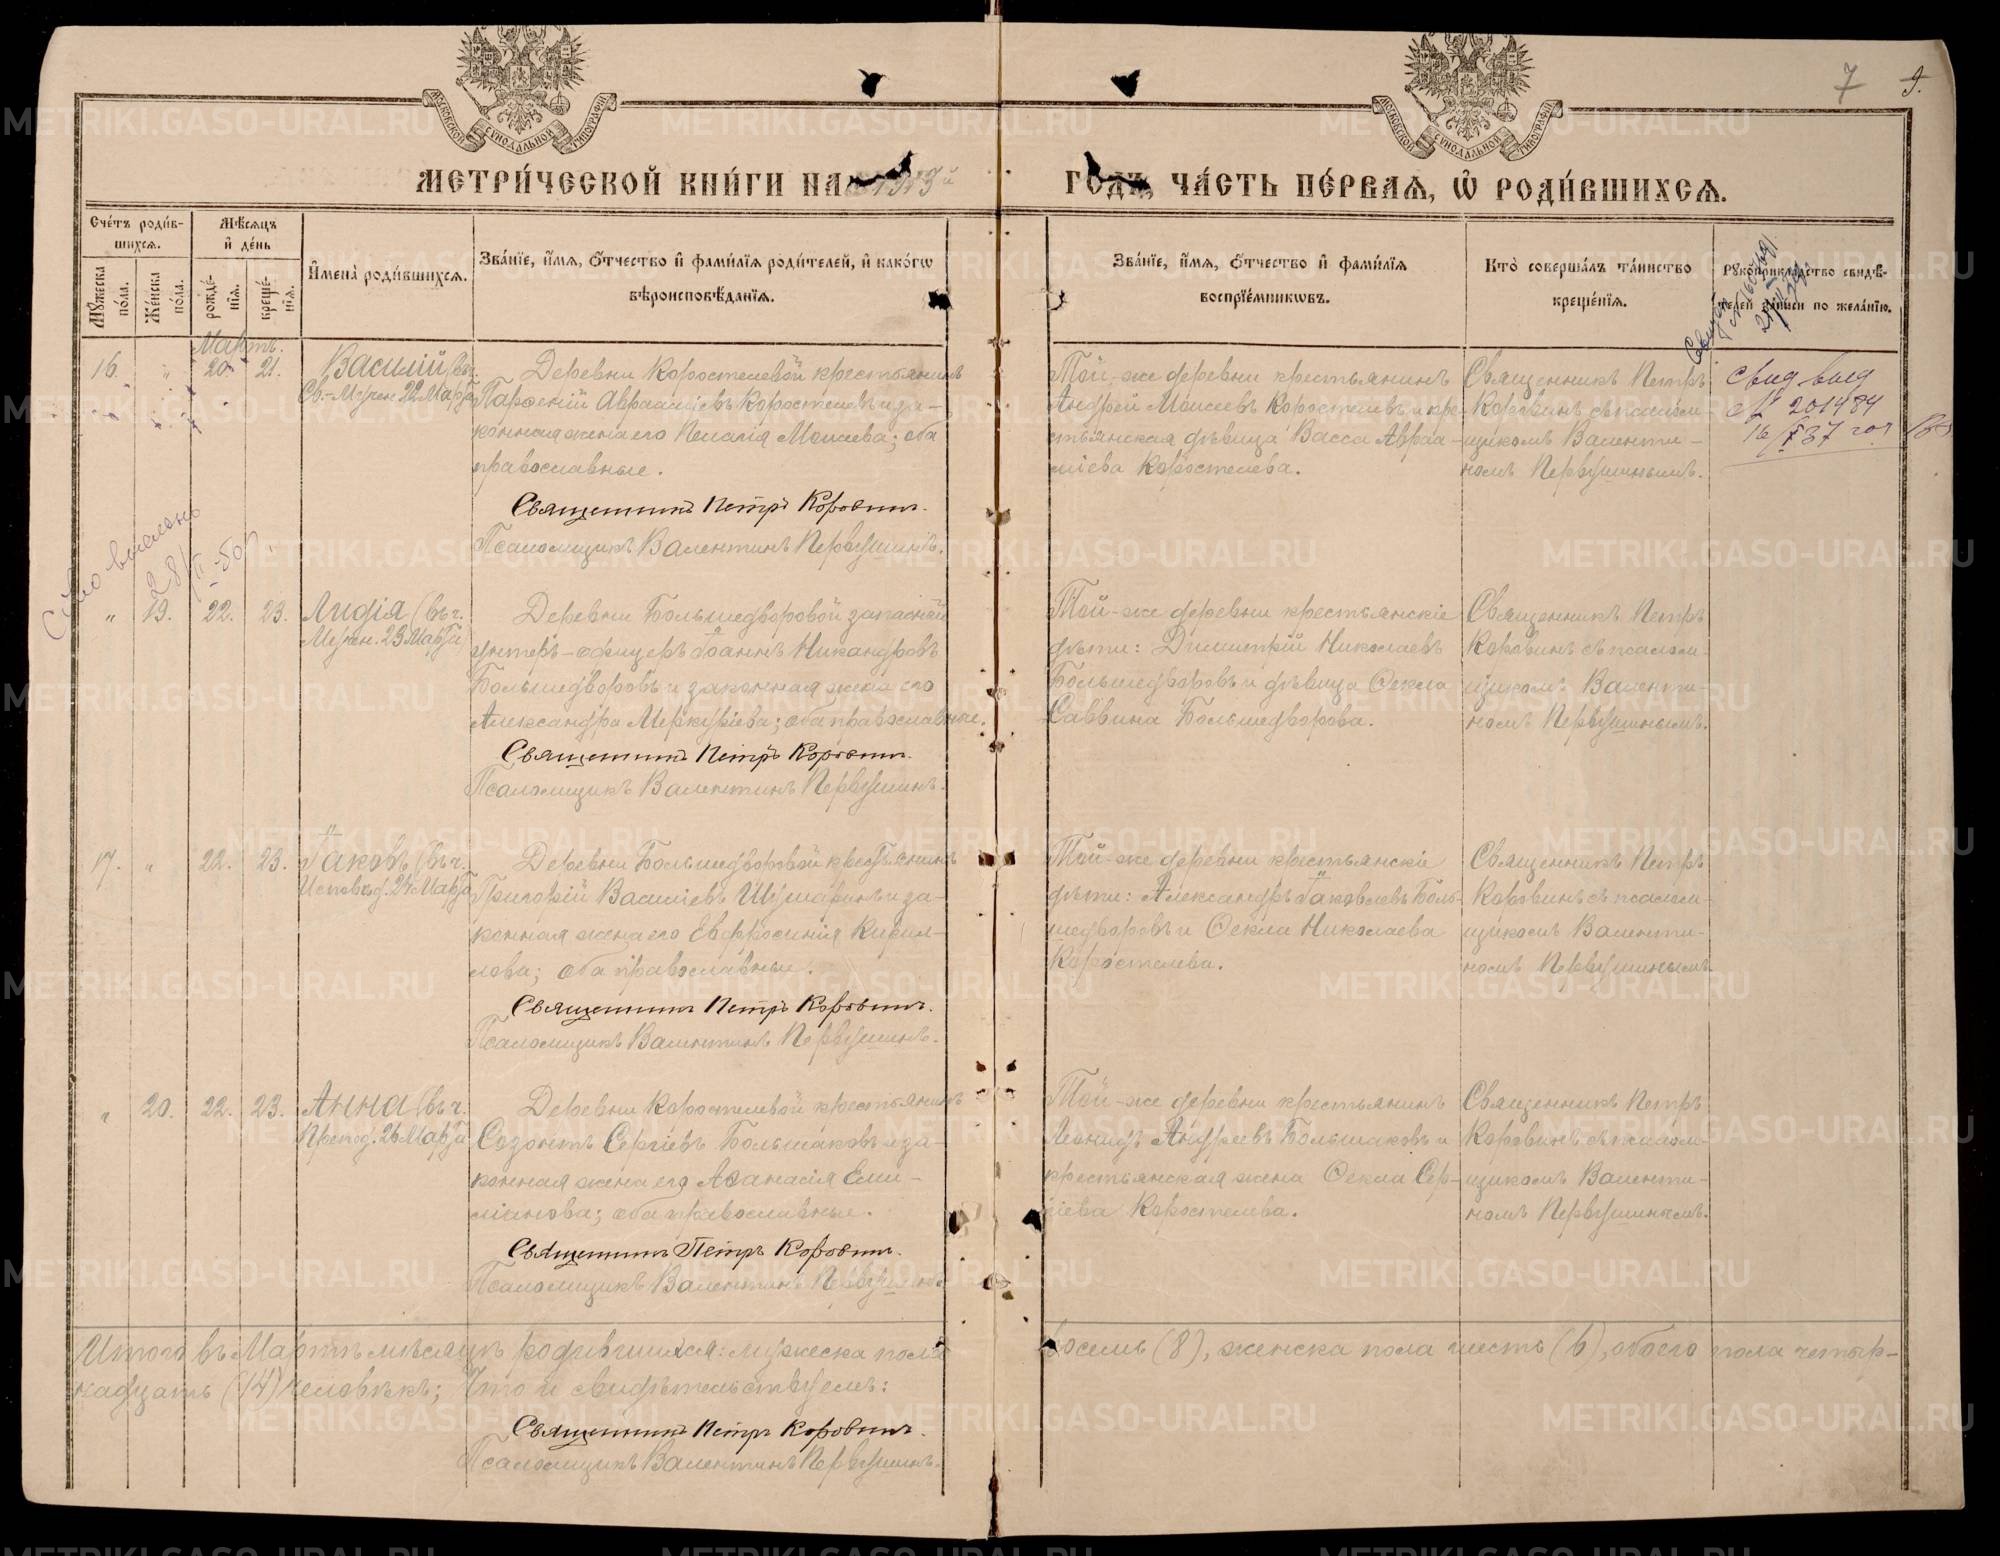 7 9.
МОСКОВСКОЙ СѴНОДАЛЬНОЙ ТИПОГРАФІИ
МОСКОВСКОЙ СѴНОДАЛЬНОЙ ТИПОГРАФІИ
МЕТРИ́ЧЕСКОЙ КНИ́ГИ НА 1913й ГОДЪ, ЧА́СТЬ ПЕ́РВАѦ, Ѡ҆ РОДИ́ВШИХСѦ.
Сче́тъ роди́в-
шихсѧ.
Мꙋжеска по́ла.
Же́нска по́ла.
Мѣ́сѧцъ
и҆ де́нь
рожде́-
нїѧ.
креще́-
нїѧ.
И҆мена̀ роди́вшихсѧ.
Зва́нїе, и҆́мѧ, ѻ҆́тчество и҆ фами́лїѧ роди́телей, и҆ како́гѡ
вѣроисповѣ́данїѧ.
Зва́нїе, и҆́мѧ, ѻ҆́тчество и҆ фами́лїѧ
воспрїе́мникѡвъ.
Кто̀ соверша́лъ та́инство
креще́нїѧ.
Рꙋкоприкла́дство свидѣ́-
телей за́писи по жела́нїю.
Мартъ.
16. " 20. 21.
Василій (въч.
Св.-Мучен. 22 Марта)
Деревни Коростелевой крестьянинъ
Парѳеній Авраамієвъ Коростелевъ и за-
конная жена его Пелагія Моисеева; оба
православные.
Священникъ Петръ Коровинъ.
Псаломщикъ Валентинъ Первушинъ.
Той-же деревни крестьянинъ
Андрей Моисеевъ Коростелевъ и кре-
стьянская дѣвица Васса Авраа-
міева Коростелева.
Священникъ Петръ
Коровинъ съ псалом-
щикомъ Валенти-
номъ Первушинымъ.
Свид. выд
№ 201484
" 19. 22. 23.
Лидія (въч.
Мучен. 23 Марта)
Деревни Большедворовой запасной
унтеръ-офицеръ Іоаннъ Никандровъ
Большедворовъ и законная жена его
Александра Меркуріева; оба православные.
Священникъ Петръ Коровинъ.
Псаломщикъ Валентинъ Первушинъ.
Той-же деревни крестьянскіе
дѣти: Димитрій Николаевъ
Большедворовъ и дѣвица Ѳекла
Саввина Большедворова.
Священникъ Петръ
Коровинъ съ псалом-
щикомъ Валенти-
номъ Первушинымъ.
17. " 22. 23.
Іаковъ (въч.
Исповѣд. 24 Марта)
Деревни Большедворовой крестьянинъ
Григорій Василіевъ Шумаринъ и за-
конная жена его Евфросинія Кирил-
лова; оба православные.
Священникъ Петръ Коровинъ.
Псаломщикъ Валентинъ Первушинъ.
Той-же деревни крестьянскіе
дѣти: Александръ Іаковлевъ Боль-
шедворовъ и Ѳекла Николаева
Коростелева.
Священникъ Петръ
Коровинъ съ псалом-
щикомъ Валенти-
номъ Первушинымъ.
" 20. 22. 23.
Анна (въч.
Препод. 26 Марта)
Деревни Коростелевой крестьянинъ
Созонтъ Сергіевъ Большаковъ и за-
конная жена его Аѳанасія Еми-
ліанова; оба православные.
Священникъ Петръ Коровинъ.
Псаломщикъ Валентинъ Первушинъ
Той-же деревни крестьянинъ
Леонидъ Андреевъ Большаковъ и
крестьянская жена Ѳекла Сер-
гіева Коростелева.
Священникъ Петръ
Коровинъ съ псалом-
щикомъ Валенти-
номъ Первушинымъ.
Итого въ Мартѣ мѣсяцѣ родившихся: мужеска пола восемь (8), женска пола шесть (6), обоего пола четыр-
надцать (14) человѣкъ; Что и свидѣтельствуемъ:
Священникъ Петръ Коровинъ.
Псаломщикъ Валентинъ Первушинъ.
METRIKI.GASO-URAL.RU